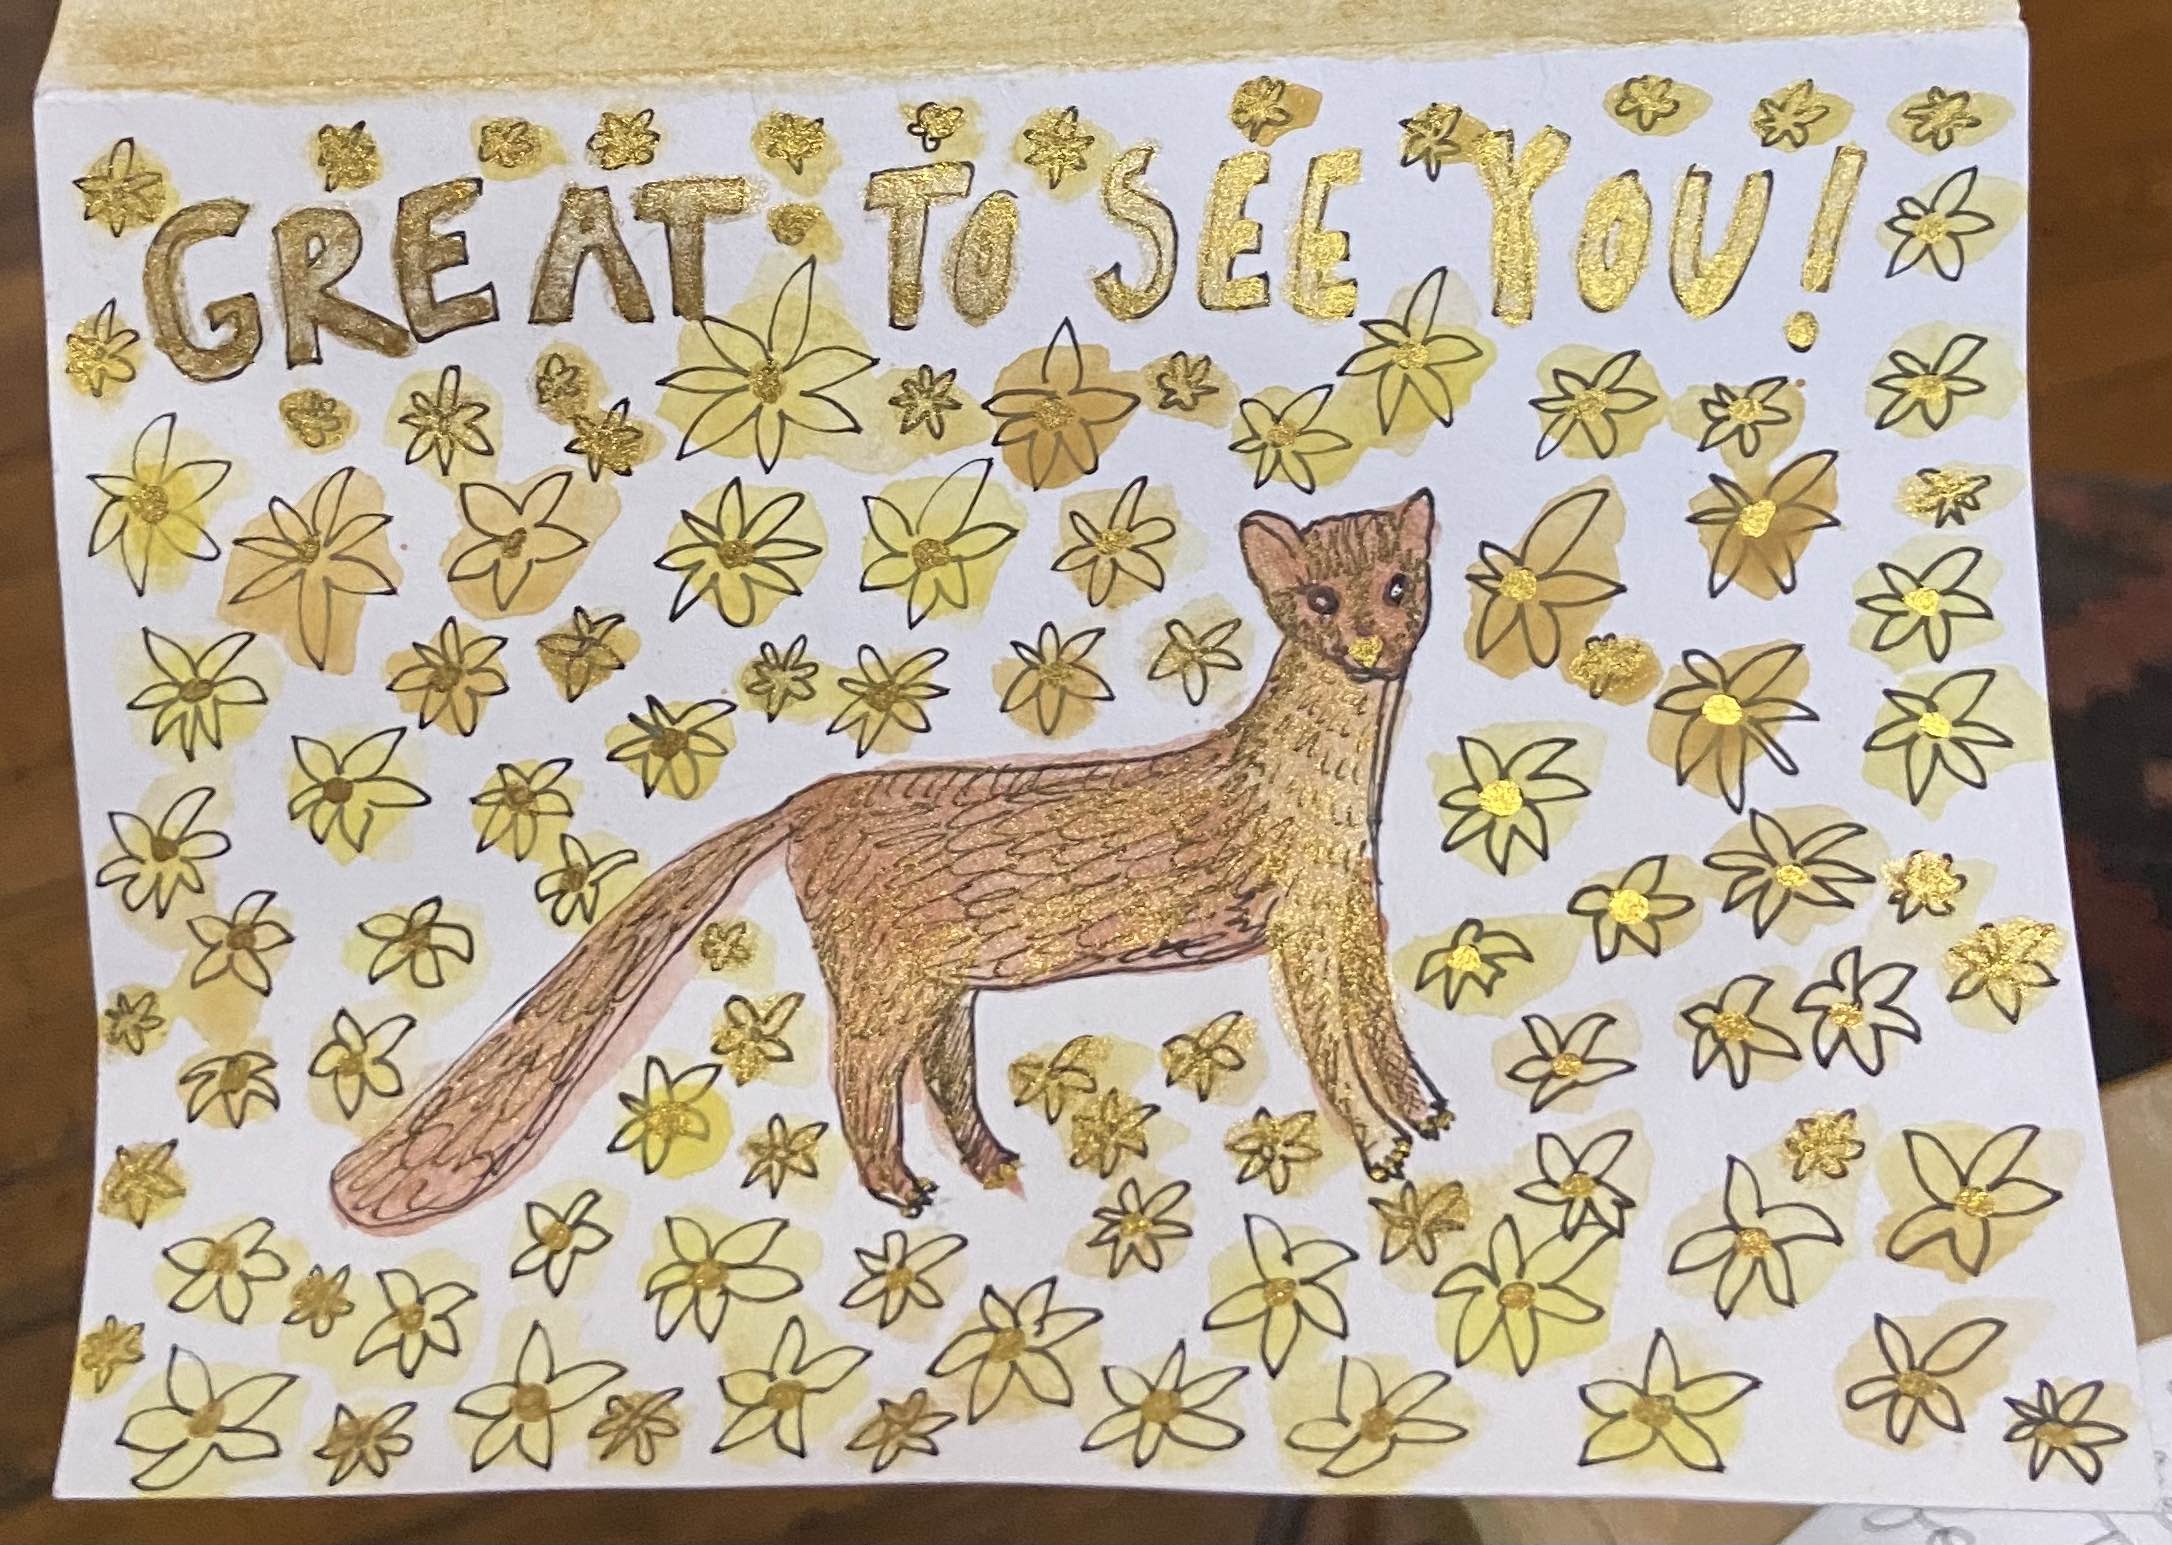 GREAT TO SEE YOU!